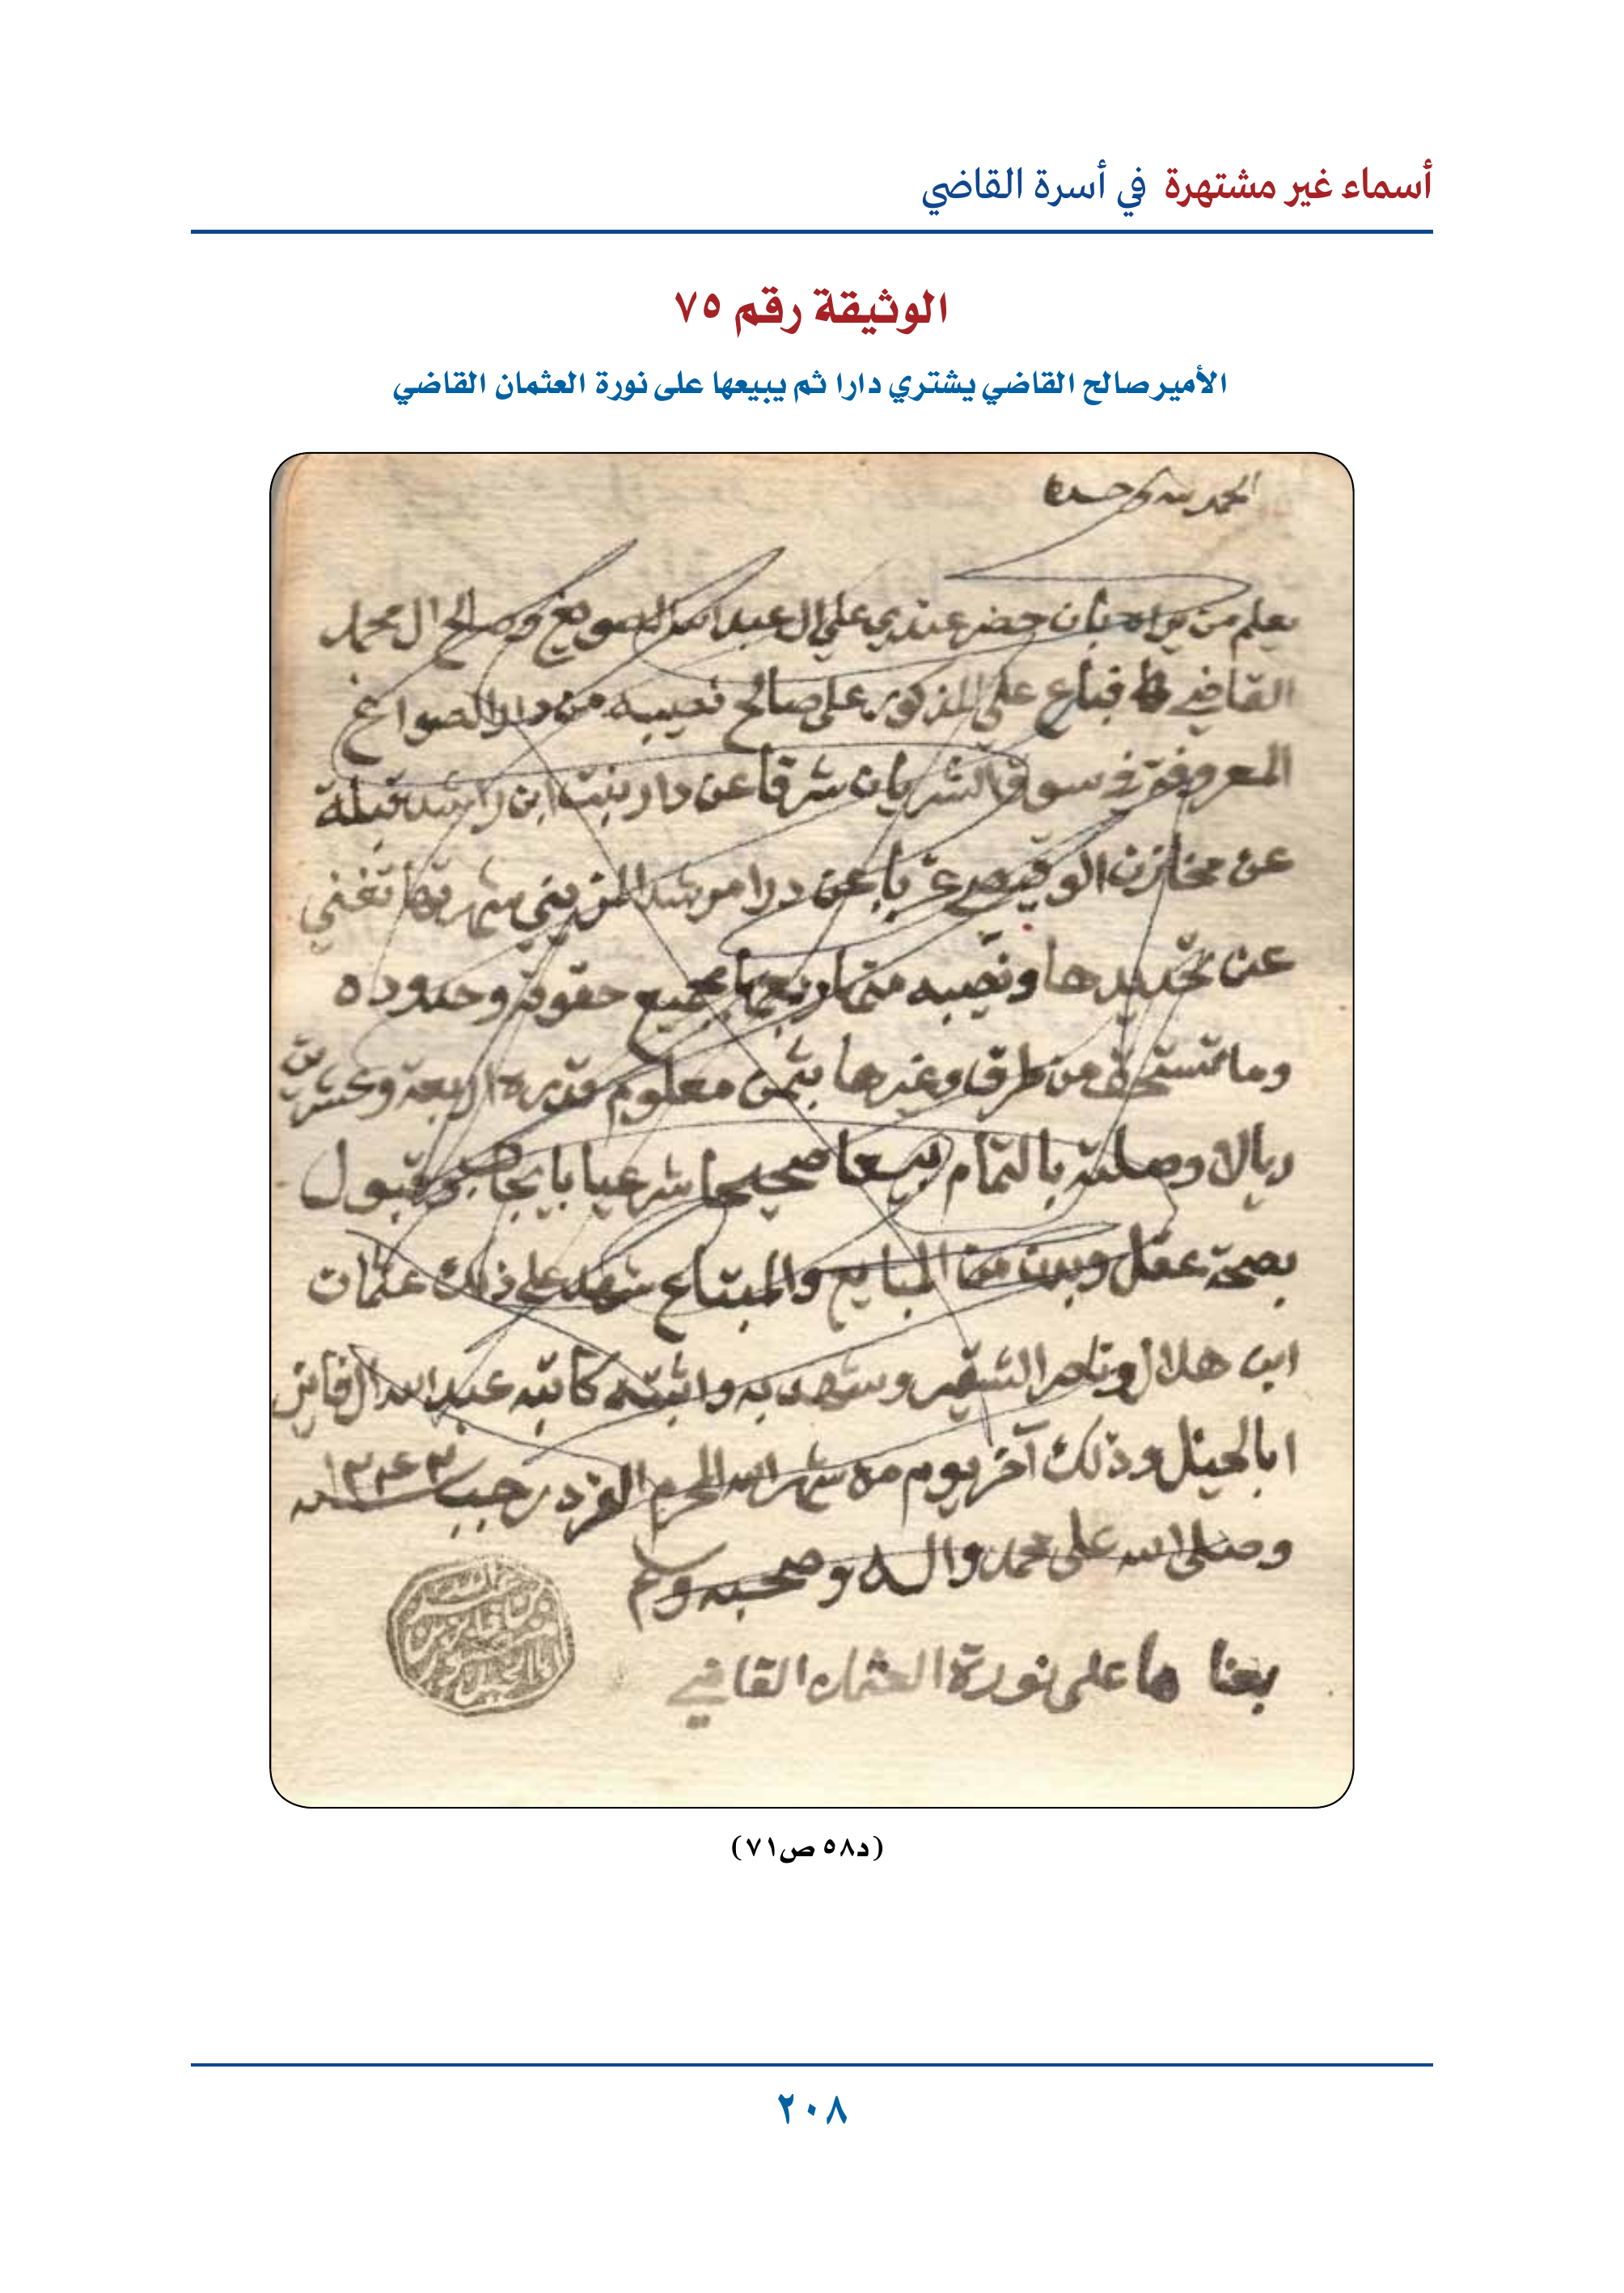 أسماء غير مشتهرة في أسرة القاضي
الوثيقة رقم ٧٥
الأمير صالح القاضي يشتري دارا ثم يبيعها على نورة العثمان القاضي
الحمد لله وحده
يعلم من يراه بان حضر عندي علي ال عبدالله الصويغ وصالح ال محمد
القاضي فباع علي المذكور على صالح نصيبه من دار الصوايغ
المعروفة في سوق شرقا عن دار بنت ابن راشد قبلة
عن مخازن غربا عن دار مرشد المزيني شهرتها تغني
عن تحديدها ونصيبه منها ربعها بجميع حقوقه وحدوده
وما تستحق من طرق وغيرها بثمن معلوم قدره اربعة وعشرين
ريالا وصلته بالتمام بيعا صحيحا شرعيا بايجاب وقبول
بصحة عقل وبدن من البايع والمبتاع شهد على ذلك عثمان
ابن هلال وناصر الشقير وشهد به واثبته كاتبه عبدالله ال فايز
ابا الخيل وذلك آخر يوم من شهر الله المحرم الفرد رجب
وصلى الله على محمد واله وصحبه وسلم
بعنا ها على نورة العثمان القاضي
(د٥٨ ص٧١)
٢٠٨